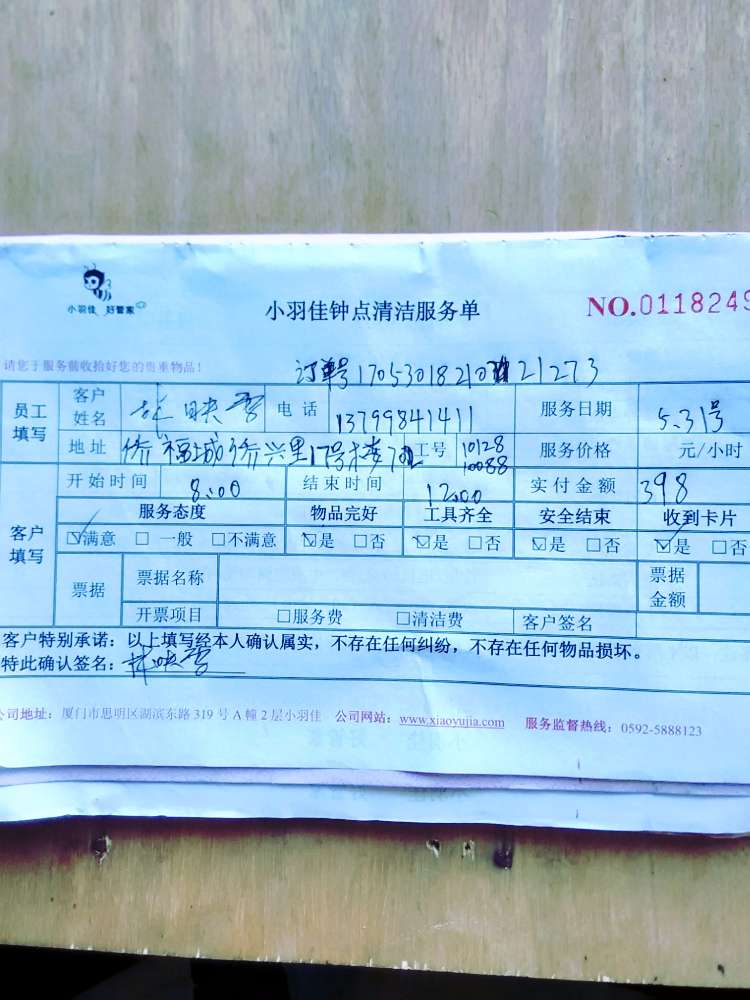 小羽佳 好管家
小羽佳钟点清洁服务单
NO.0118249
请您于服务前收拾好您的贵重物品！
订单号170530182102121273
员工填写 客户姓名 林映雪 电话 13799841411 服务日期 5.31号
地址 侨福城侨兴里17号楼 工号 10128 10088 服务价格 元/小时
客户填写 开始时间 8:00 结束时间 12:00 实付金额 398
服务态度 物品完好 工具齐全 安全结束 收到卡片
☑满意 □一般 □不满意 ☑是 □否 ☑是 □否 ☑是 □否 ☑是 □否
票据 票据名称 票据金额
开票项目 □服务费 □清洁费 客户签名
客户特别承诺：以上填写经本人确认属实，不存在任何纠纷，不存在任何物品损坏。
特此确认签名：林映雪
公司地址：厦门市思明区湖滨东路 319 号 A 幢 2 层小羽佳 公司网站：www.xiaoyujia.com 服务监督热线：0592-5888123